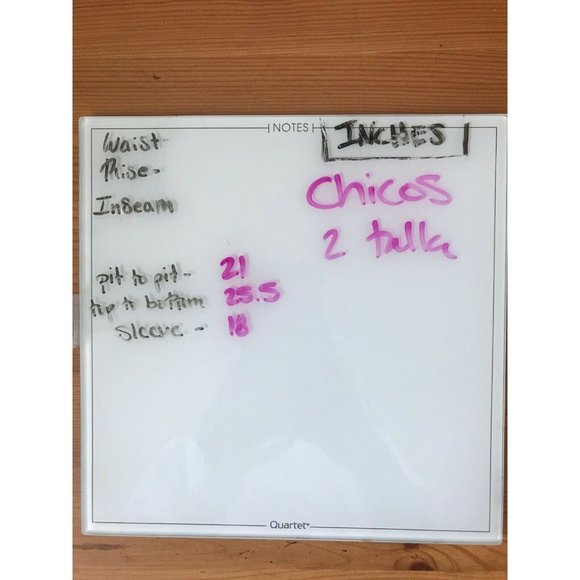 NOTES
INCHES
Waist-
Rise-
Inseam
Chicos
2
pit to pit - 21
top to bottom 25.5
Sleeve - 18
Quartet